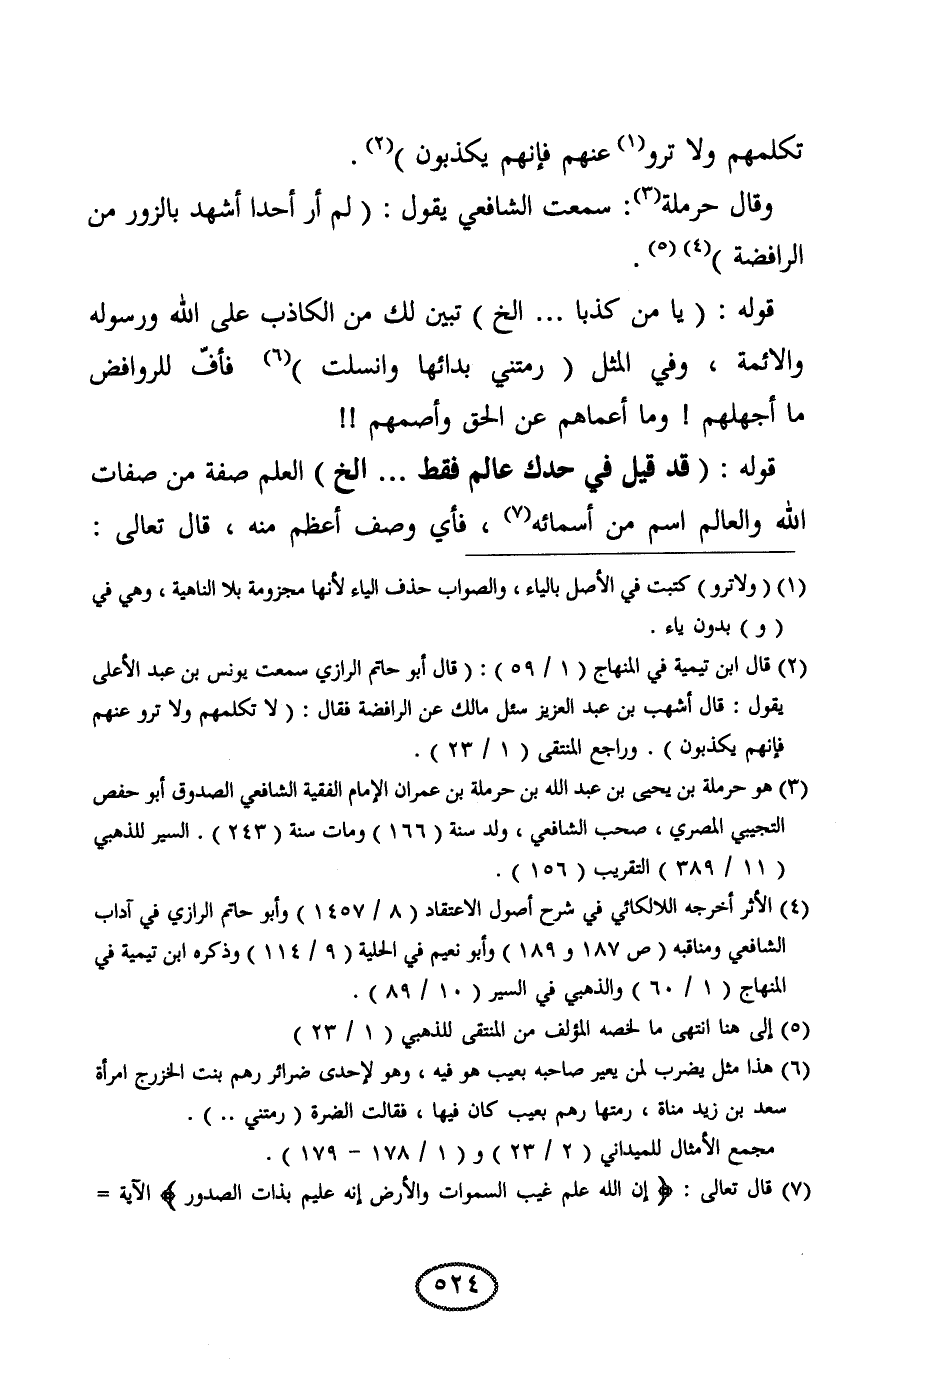 تكلمهم ولا ترو(١) عنهم فإنهم يكذبون )(٢) .
وقال حرملة(٣): سمعت الشافعي يقول : ( لم أر أحدا أشهد بالزور من
الرافضة )(٤) (٥) .
قوله : ( يا من كذبا ... الخ ) تبين لك من الكاذب على الله ورسوله
والائمة ، وفي المثل ( رمتني بدائها وانسلت )(٦) فأفّ للروافض
ما أجهلهم ! وما أعماهم عن الحق وأصمهم !!
قوله : ( قد قيل في حدك عالم فقط ... الخ ) العلم صفة من صفات
الله والعالم اسم من أسمائه(٧) ، فأي وصف أعظم منه ، قال تعالى :
(١) ( ولاترو ) كتبت في الأصل بالياء ، والصواب حذف الياء لأنها مجزومة بلا الناهية ، وهي في
( و ) بدون ياء .
(٢) قال ابن تيمية في المنهاج ( ١ / ٥٩ ) : ( قال أبو حاتم الرازي سمعت يونس بن عبد الأعلى
يقول : قال أشهب بن عبد العزيز سئل مالك عن الرافضة فقال : ( لا تكلمهم ولا ترو عنهم
فإنهم يكذبون ) . وراجع المنتقى ( ١ / ٢٣ ) .
(٣) هو حرملة بن يحيى بن عبد الله بن حرملة بن عمران الإمام الفقية الشافعي الصدوق أبو حفص
التجيبي المصري ، صحب الشافعي ، ولد سنة ( ١٦٦ ) ومات سنة ( ٢٤٣ ) . السير للذهبي
( ١١ / ٣٨٩ ) التقريب ( ١٥٦ ) .
(٤) الأثر أخرجه اللالكائي في شرح أصول الاعتقاد ( ٨ / ١٤٥٧ ) وأبو حاتم الرازي في آداب
الشافعي ومناقبه ( ص ١٨٧ و ١٨٩ ) وأبو نعيم في الحلية ( ٩ / ١١٤ ) وذكره ابن تيمية في
المنهاج ( ١ / ٦٠ ) والذهبي في السير ( ١٠ / ٨٩ ) .
(٥) إلى هنا انتهى ما لخصه المؤلف من المنتقى للذهبي ( ١ / ٢٣ )
(٦) هذا مثل يضرب لمن يعير صاحبه بعيب هو فيه ، وهو لإحدى ضرائر رهم بنت الخزرج امرأة
سعد بن زيد مناة ، رمتها رهم بعيب كان فيها ، فقالت الضرة ( رمتني .. ) .
مجمع الأمثال للميداني ( ٢ / ٢٣ ) و ( ١ / ١٧٨ - ١٧٩ ) .
(٧) قال تعالى : ﴿ إن الله علم غيب السموات والأرض إنه عليم بذات الصدور ﴾ الآية =
٥٢٤